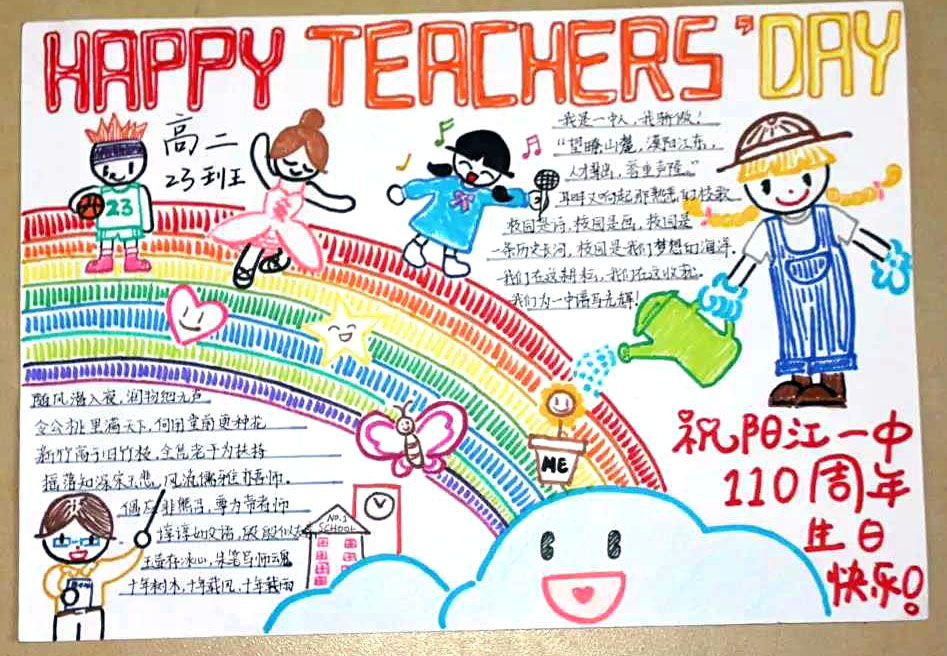 HAPPY TEACHERS' DAY
高二
23班
23
我是一中人，我骄傲！
“望瞭山麓，漠阳江东，
人才辈出，誉重声隆。”
耳畔又响起那熟悉的校歌
校园是诗，校园是画，校园是
一条历史长河，校园是我们梦想的海洋.
我们在这耕耘，我们在这收获.
我们为一中谱写光辉！
随风潜入夜，润物细无声
令公桃李满天下，何用堂前更种花
新竹高于旧竹枝，全凭老干为扶持
摇落知深宋玉悲，风流儒雅亦吾师.
偶应非熊兆，尊为帝者师
谆谆如父语，殷殷似
玉壶存冰心，朱笔写师魂
十年树木，十年载风，十年载雨
NO.1
SCHOOL
ME
祝阳江一中
110周年
生日
快乐！